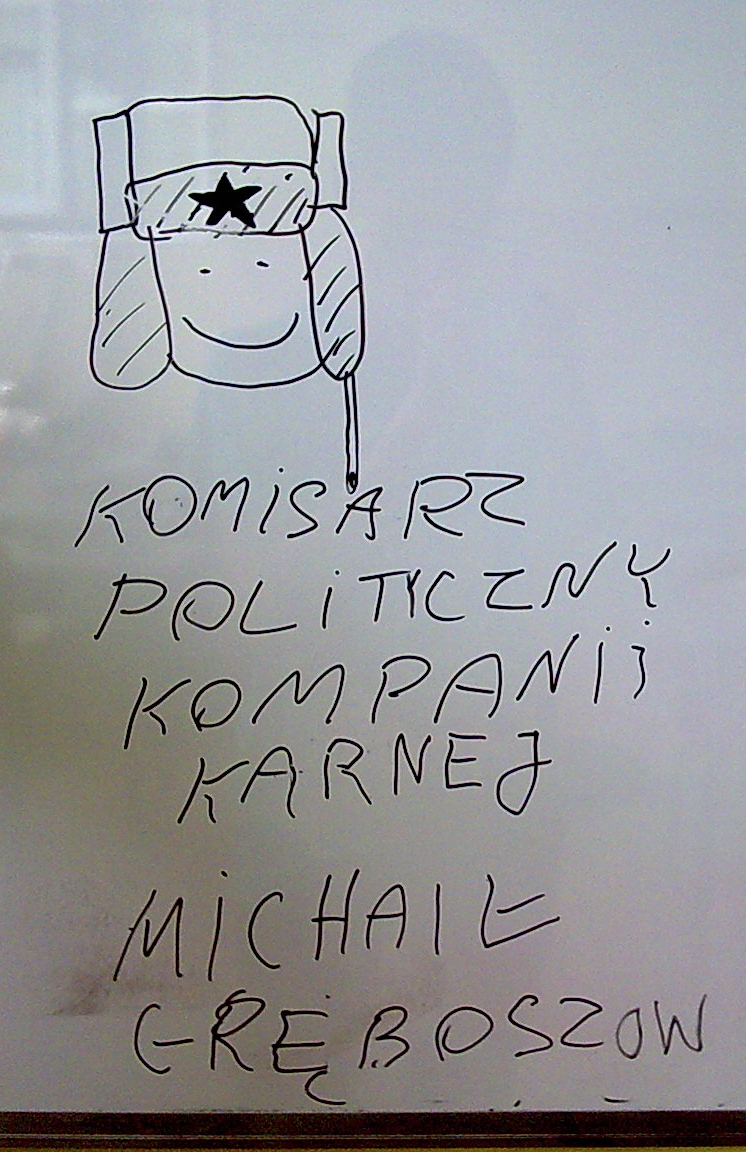 KOMiSARZ
POLiTYCZNY
KOMPANii
KARNEJ
MiCHAIŁ
GRĘBOSZOW